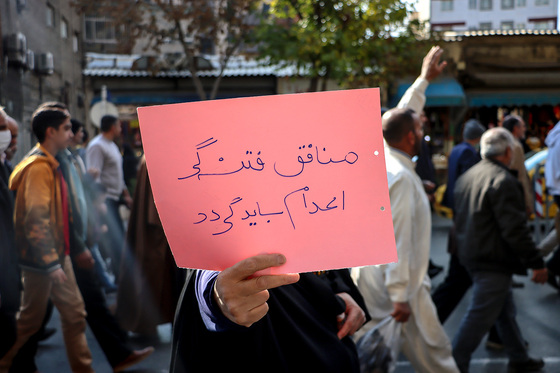 منافق فتنه گر
اعدام باید گردد